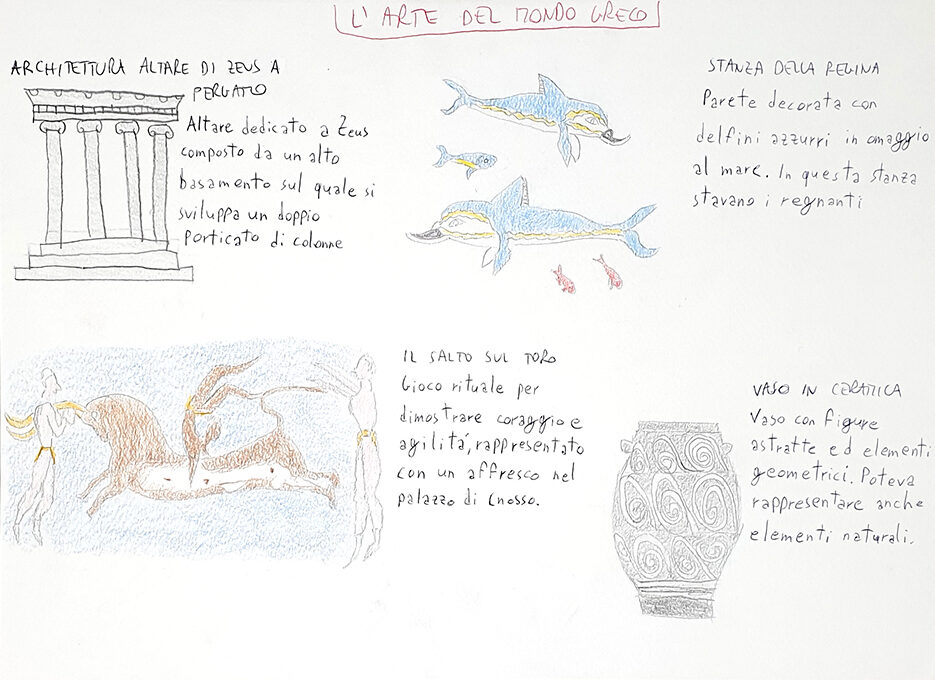 L'ARTE DEL MONDO GRECO
ARCHITETTURA ALTARE DI ZEUS A
PERGAMO
Altare dedicato a Zeus
composto da un alto
basamento sul quale si
sviluppa un doppio
porticato di colonne
STANZA DELLA REGINA
Parete decorata con
delfini azzurri in omaggio
al mare. In questa stanza
stavano i regnanti
IL SALTO SUL TORO
Gioco rituale per
dimostrare coraggio e
agilità, rappresentato
con un affresco nel
palazzo di Cnosso.
VASO IN CERAMICA
Vaso con figure
astratte ed elementi
geometrici. Poteva
rappresentare anche
elementi naturali.